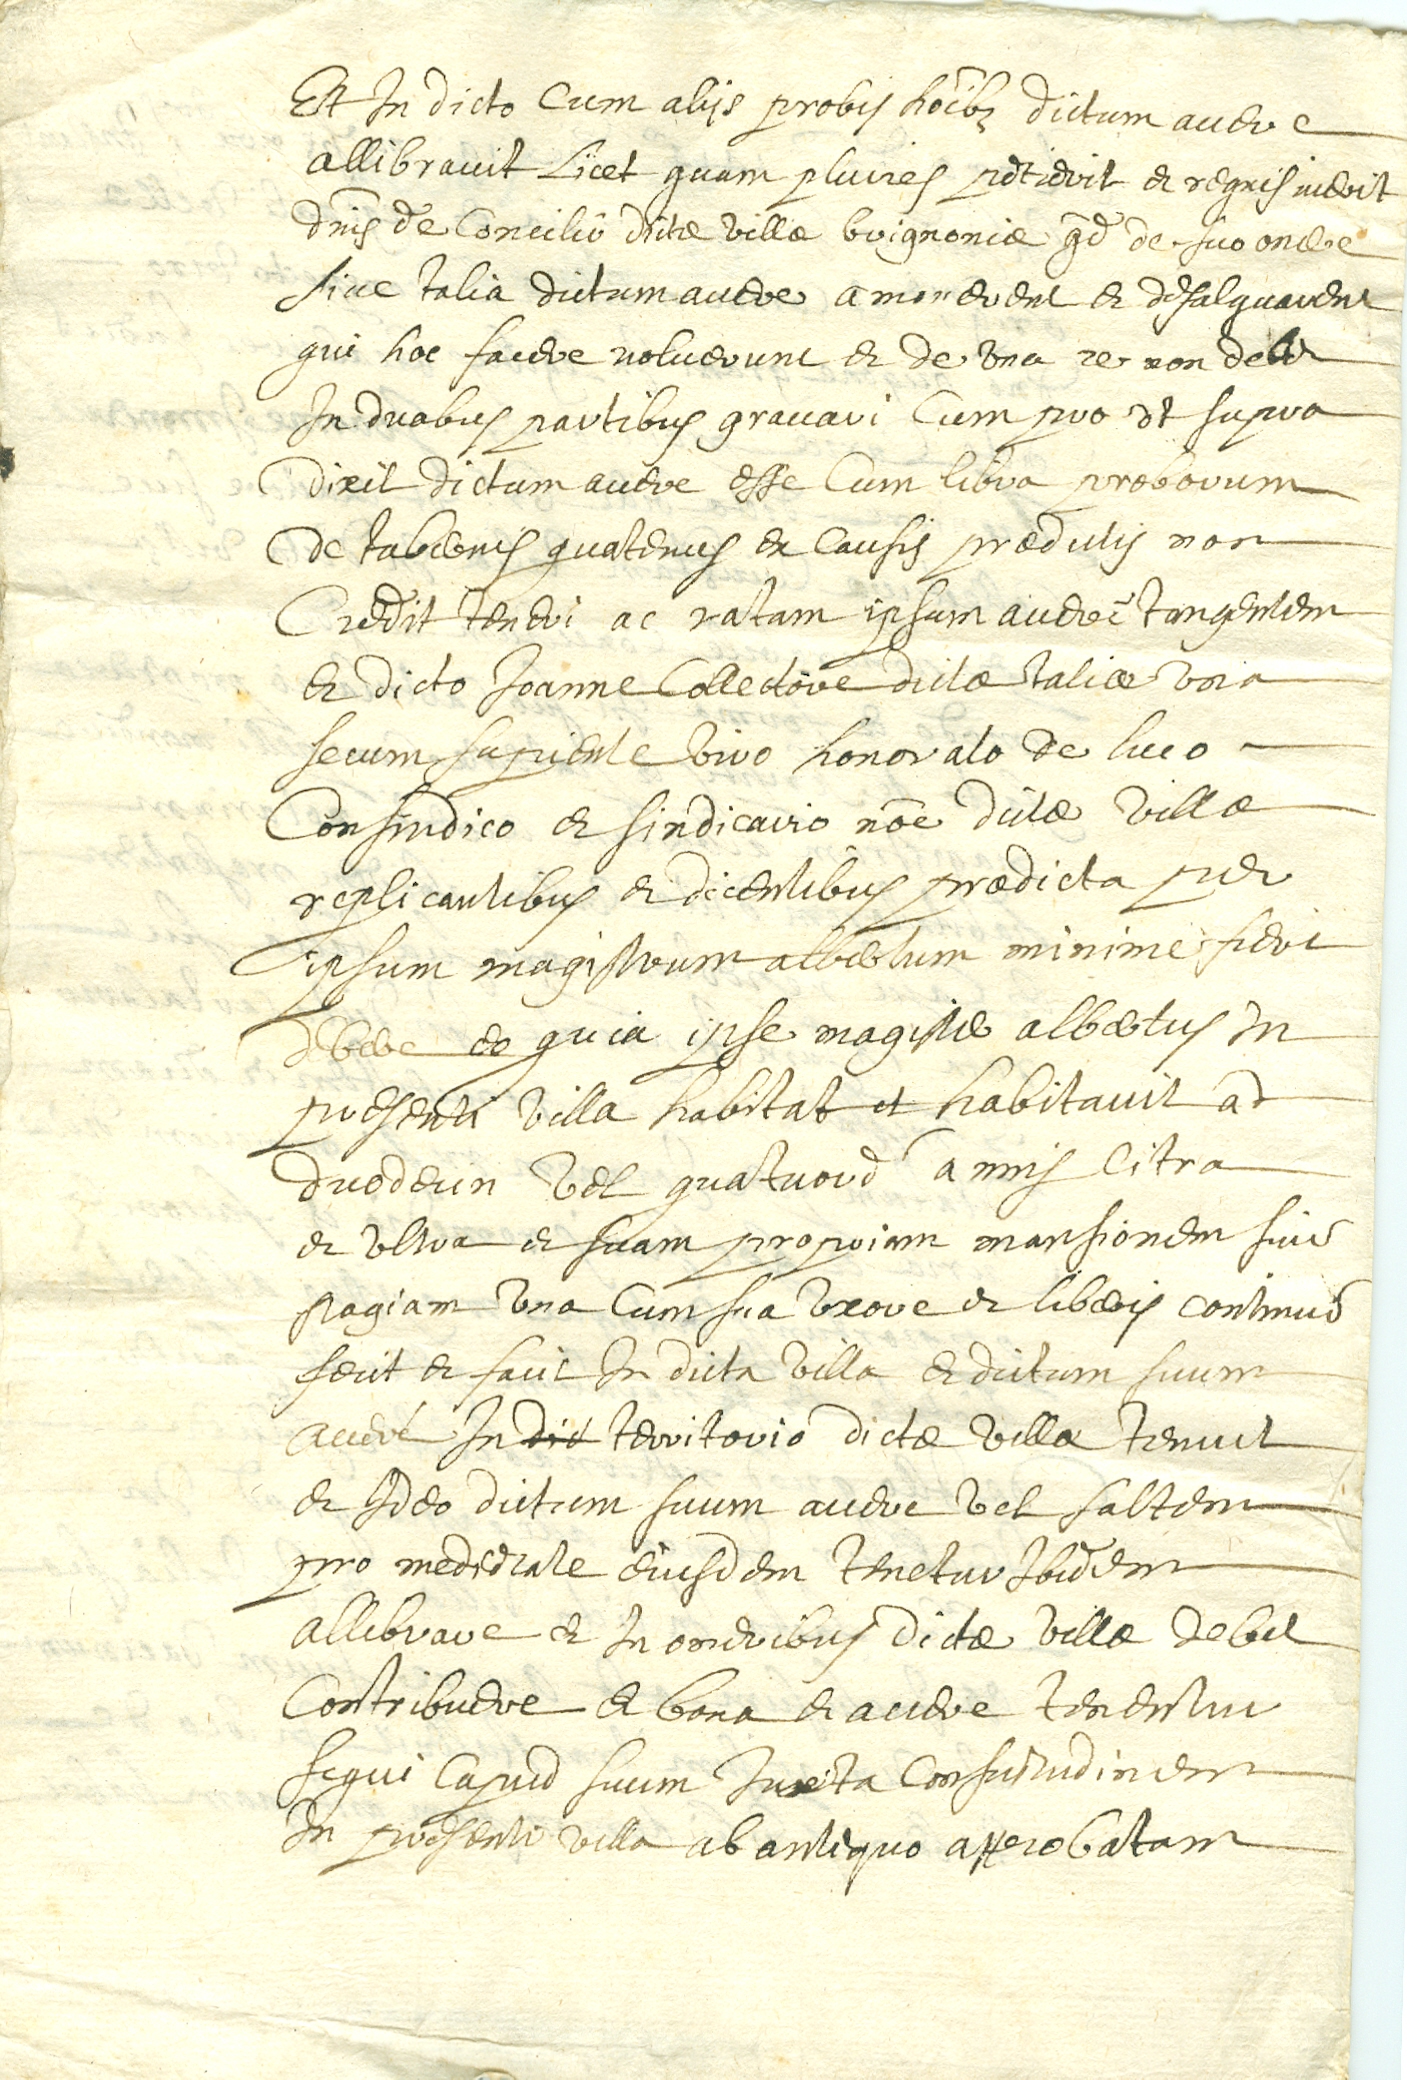 Et In dicto Cum alijs probis hoĩbȝ dictum auere
allibrauit Licet quam pluries petierit et requisiuerit
dnis de Concilio dictæ villæ brignoniæ qd de suo onere
siue talia dictum auere amouerent et desalquarent
qui hoc facere noluerunt et de una re non debet
In duabus partibus grauari Cum pro ut supra
dixit dictum auere esse Cum libra proborum
de tabernis quatenus ex Causis prædictis non
Credit teneri ac ratam ipsum auere tangentem
et dicto Joanne Collectore dictæ taliæ una
secum sapiente viro honorato de luco
Consindico et sindicario noe dictæ villæ
replicantibus et dicentibus prædicta per
ipsum magistrum albertum minime fieri
debere eo quia ipse magister albertus In
præsenti villa habitat et habitauit ad
duodecim vel quatuord annis Citra
et ultra et suam propriam mansionem siue
stagiam una Cum sua uxore et liberis continue
fecit et facit In dicta villa et dictum suum
auere In dic territorio dictæ villæ tenuit
et Ideo dictum suum auere vel saltem
pro medietate eiusdem tenetur Ibidem
allibrare et In oneribus dictæ villæ debet
Contribuere et bona et auere tenentur
sequi Capud suum Juxta Consuetudinem
In præsenti villa ab antiquo approbatam